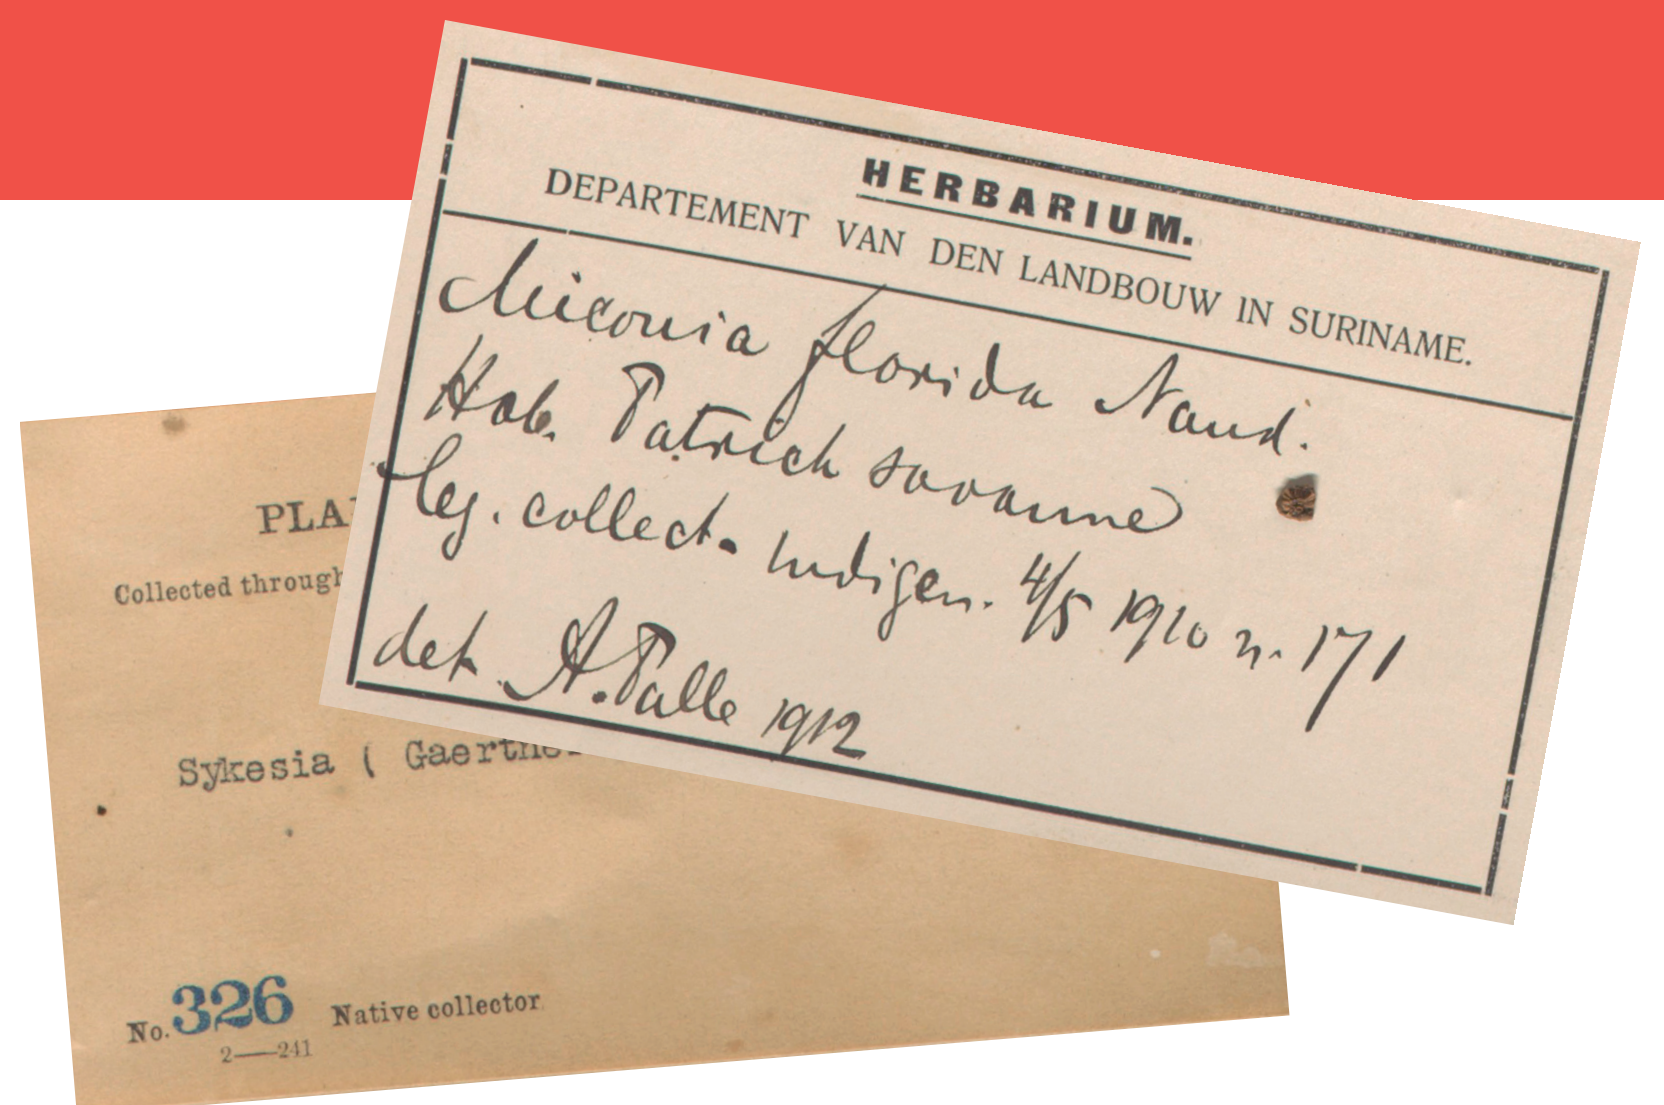 HERBARIUM.
DEPARTEMENT VAN DEN LANDBOUW IN SURINAME.
Miconia florida Naud.
Hab. Patrick savanne
leg. collect. indigen. 4/5 1910 n. 171
det. A. Pulle 1912
PLA
Collected through
Sykesia ( Gaertne
No. 326 Native collector
2—241